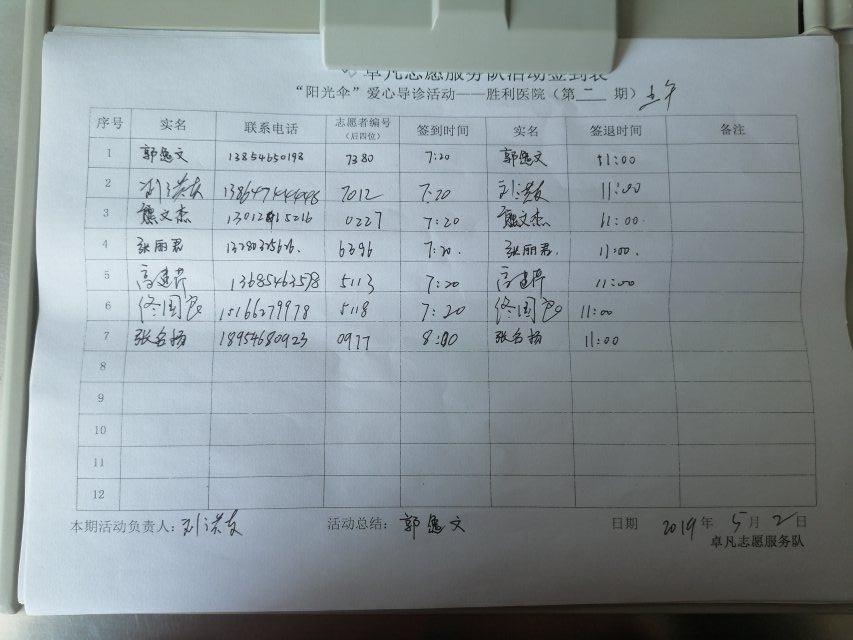 卓凡志愿服务队活动签到表
“阳光伞”爱心导诊活动——胜利医院（第二期）上午
序号 实名 联系电话 志愿者编号（后四位） 签到时间 实名 签退时间 备注
1 郭逸文 13854650198 7380 7:20 郭逸文 11:00
2 刘洪友 7012 7:20 刘洪友 11:00
3 魏文杰 0227 7:20 魏文杰 11:00
4 张丽君 6396 7:20. 张丽君 11:00.
5 高建芹 13685463578 5113 7:20 高建芹 11:00
6 佟国 15166279978 5118 7:20 佟国 11:00
7 张名扬 18954680923 0977 8:00 张名扬 11:00
8
9
10
11
12
本期活动负责人：刘洪友 活动总结：郭逸文 日期 2019年5月2日
卓凡志愿服务队